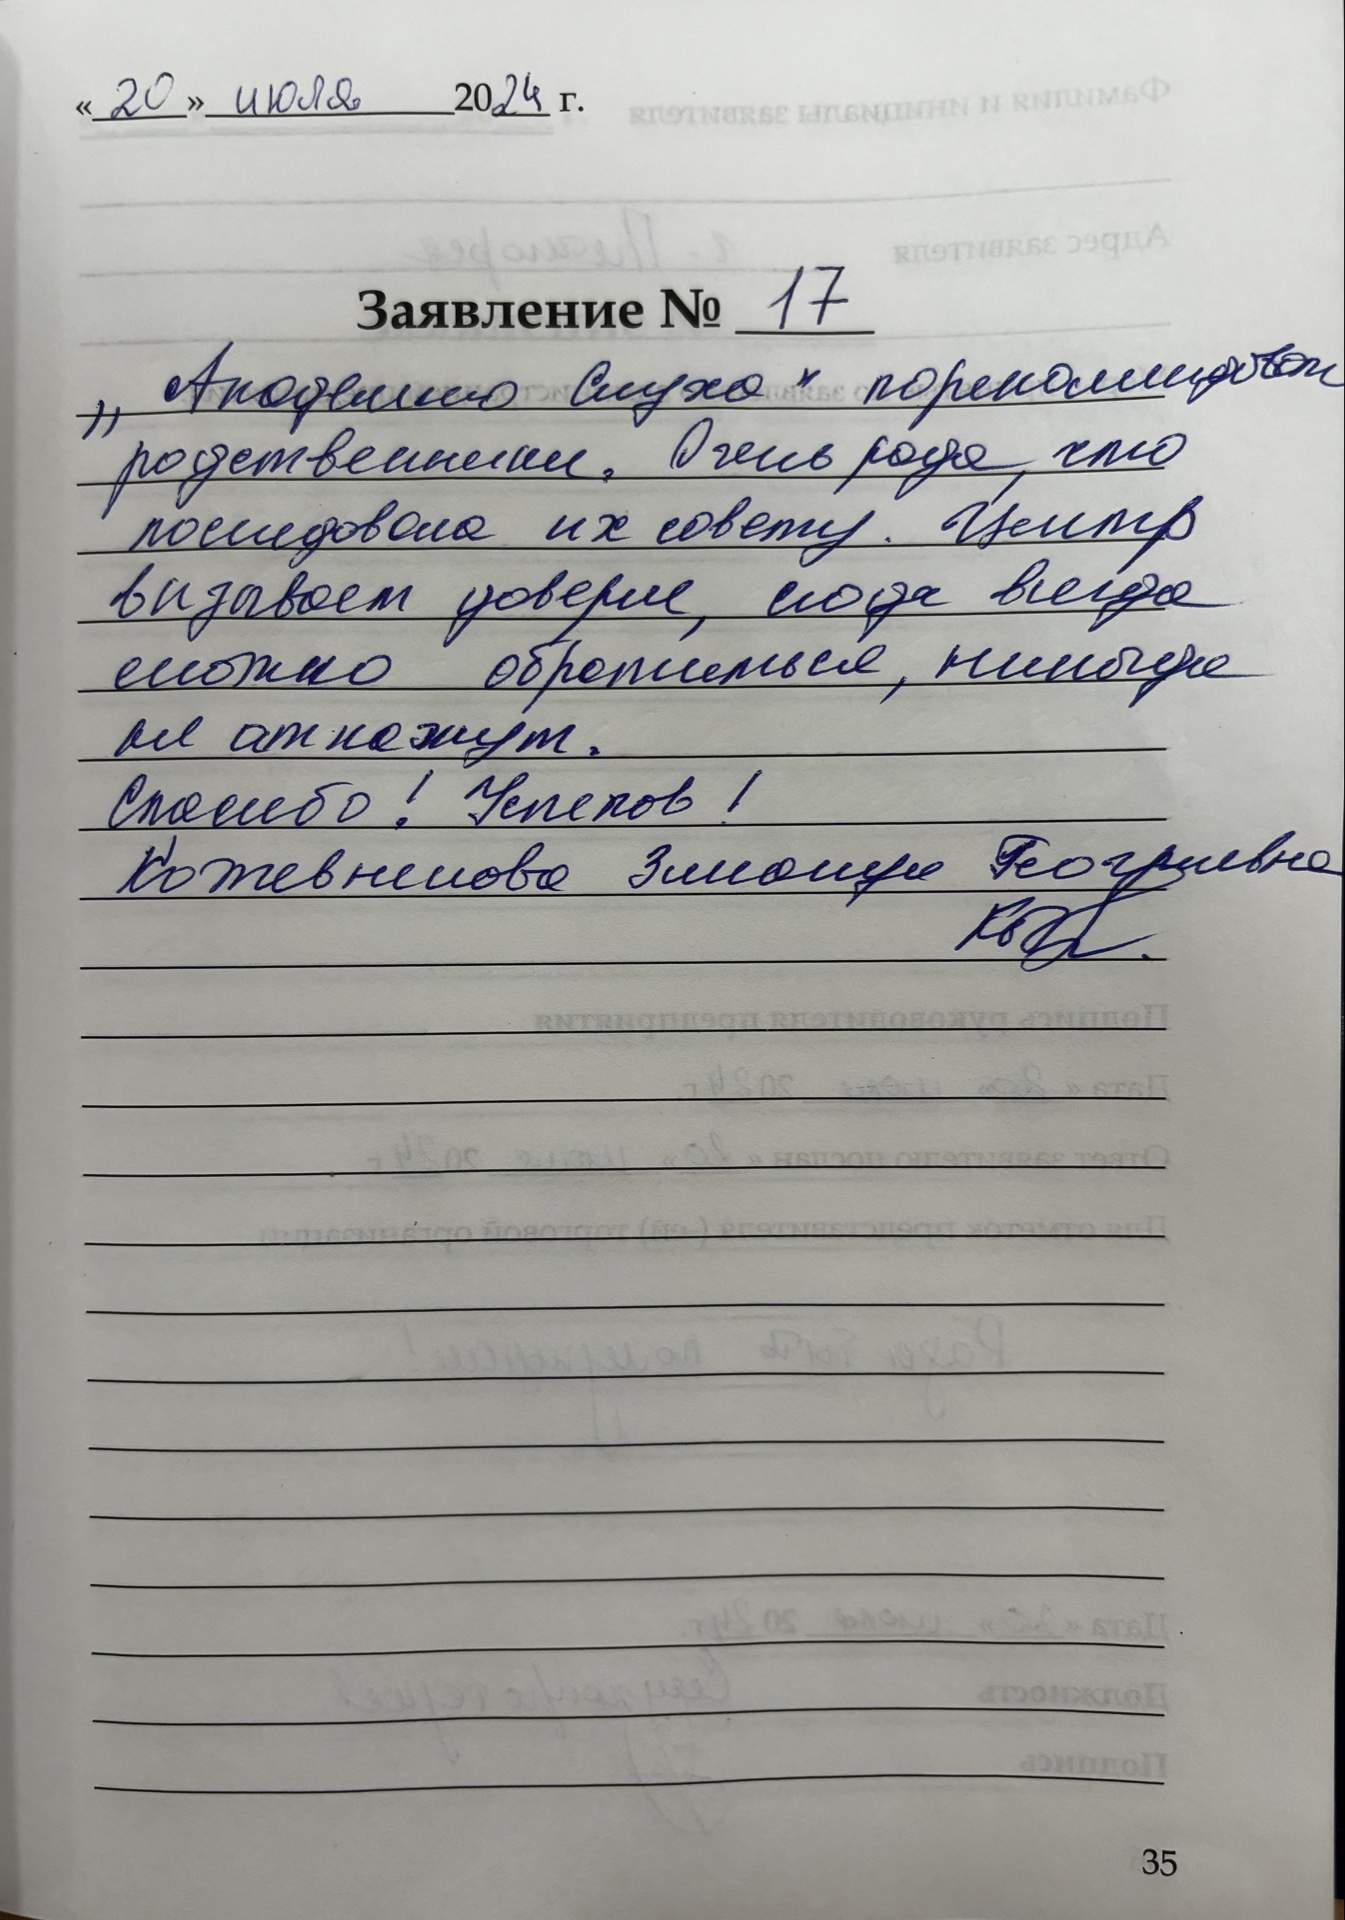 «20» июля 2024 г.
Заявление № 17
„Академию Слуха" порекомендовали
родственники. Очень рада, что
последовала их совету. Центр
вызывает доверие, сюда всегда
можно обратиться, никогда
не откажут.
Спасибо! Успехов!
Кожевникова Зинаида Георгиевна
35